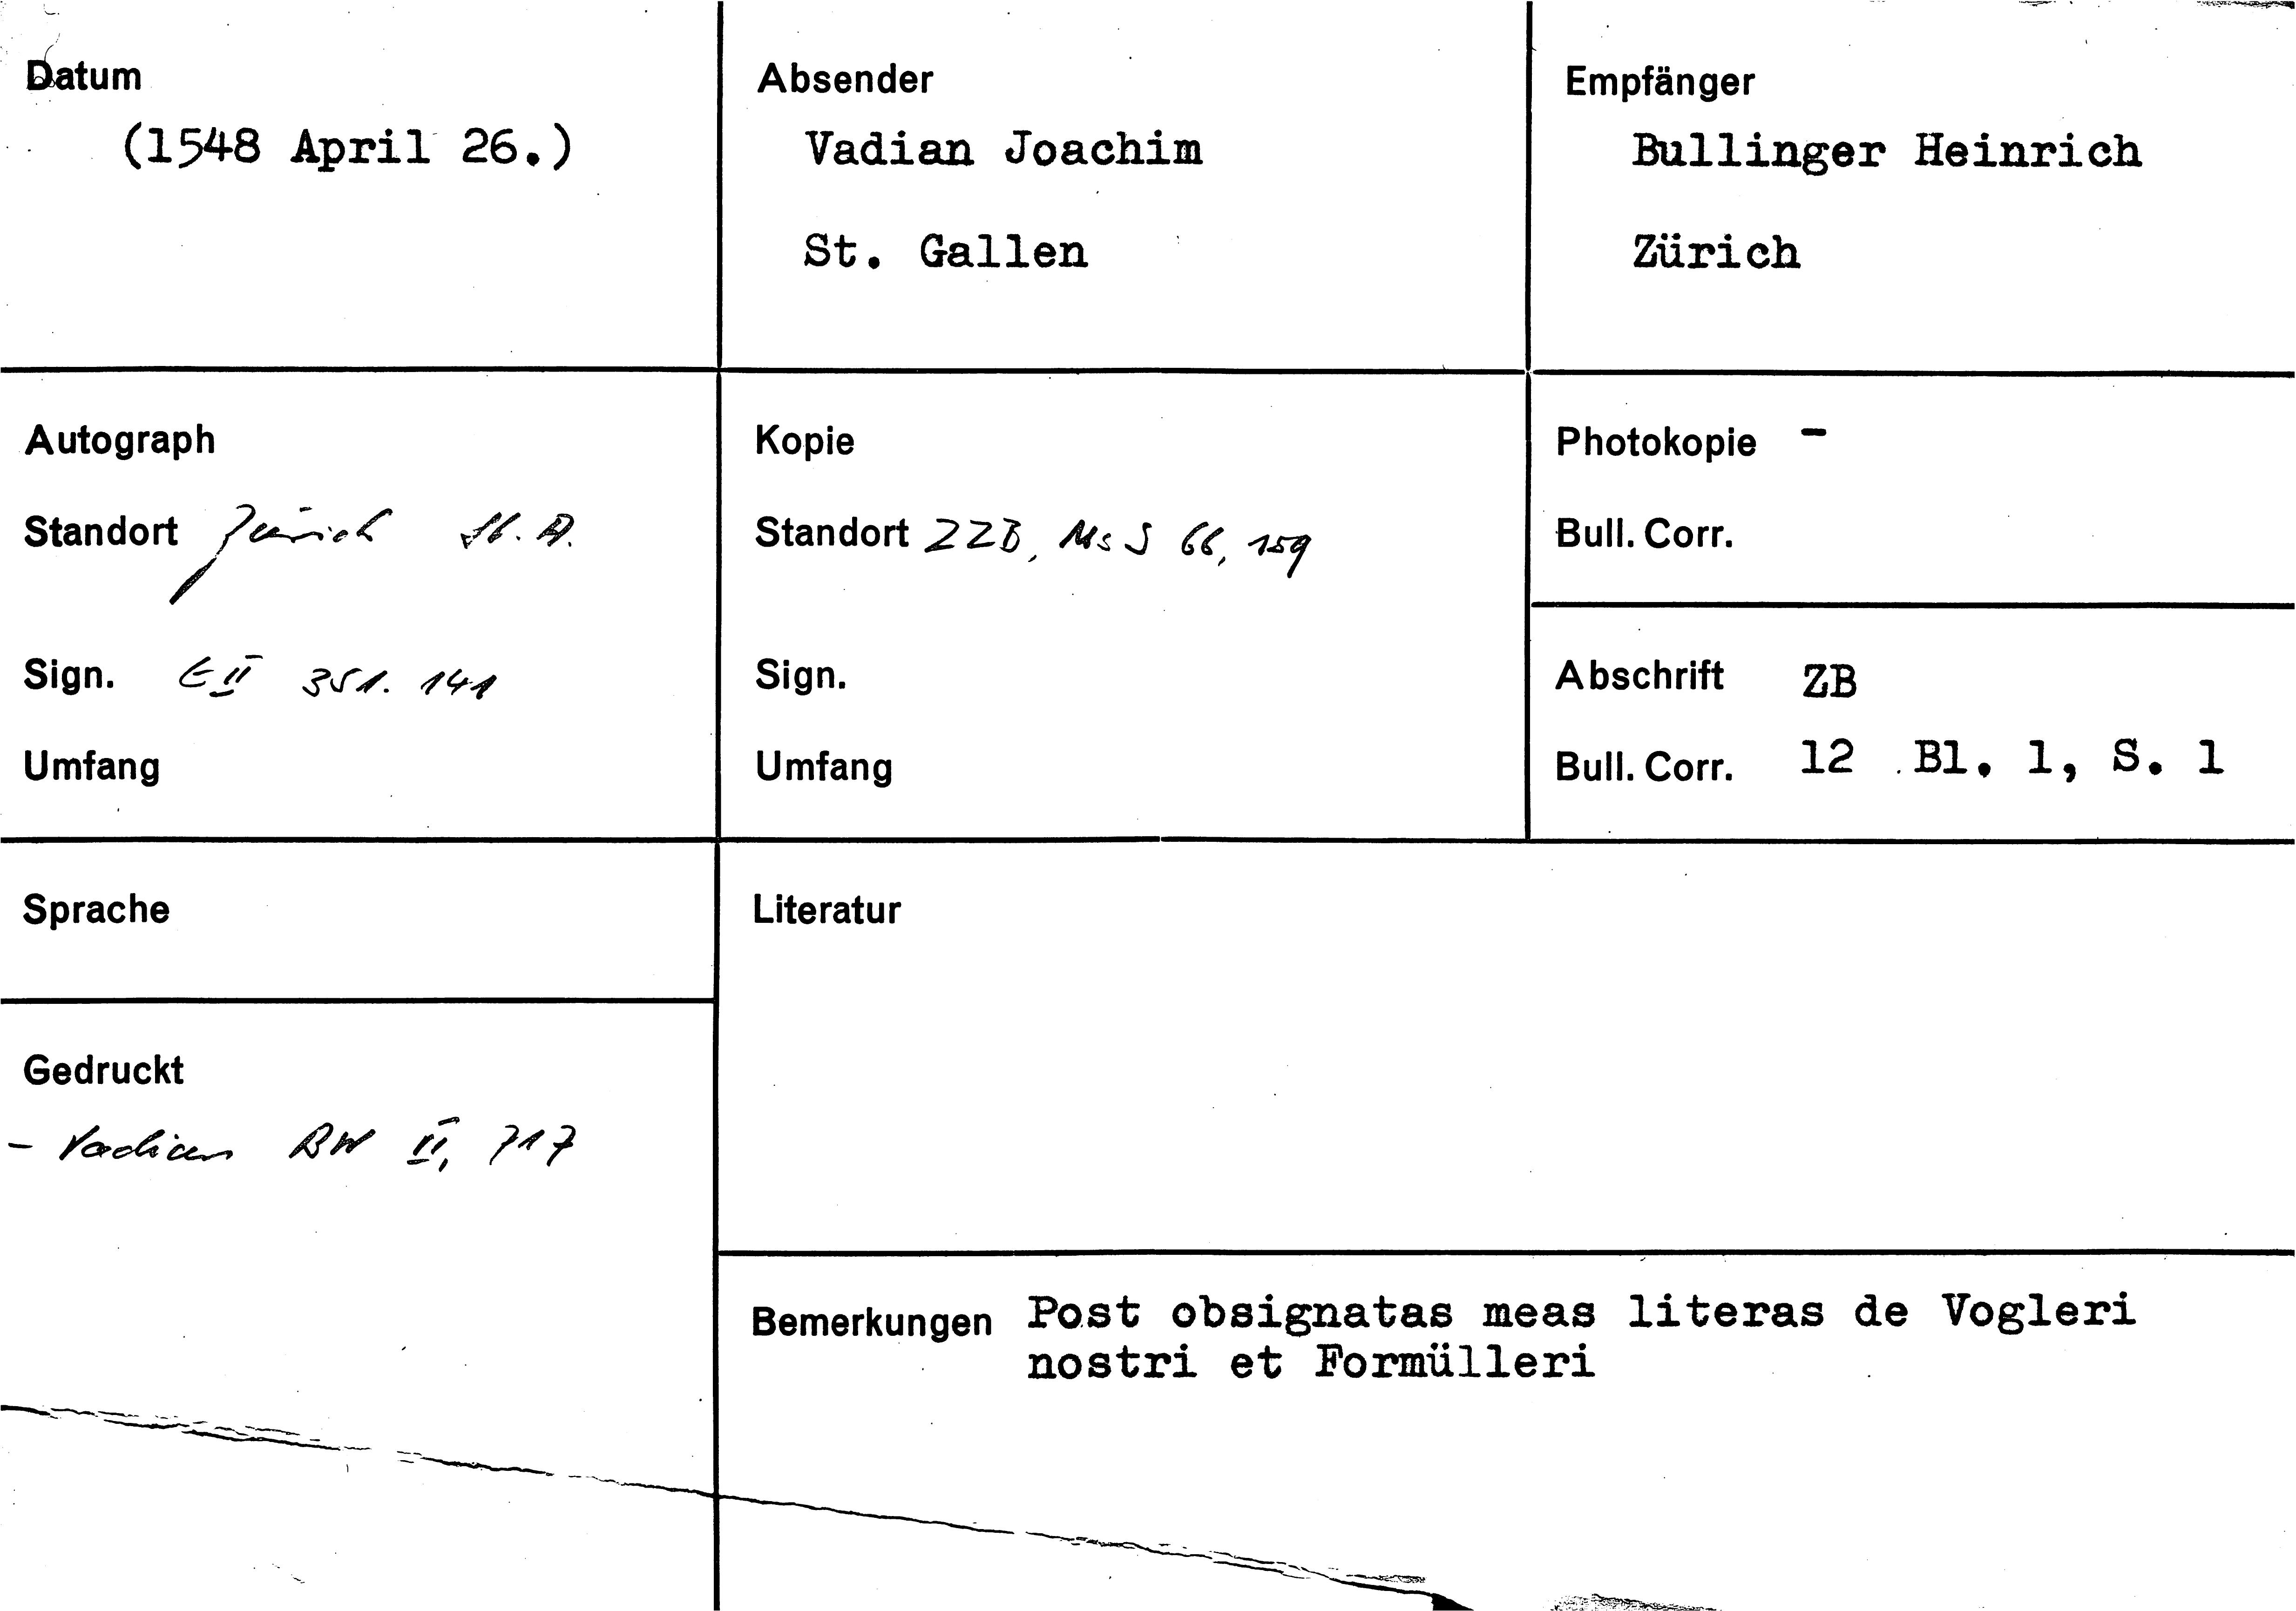 Datum
(1548 April 26.)
Absender
Vadian Joachim
St. Gallen
Empfänger
Bullinger Heinrich
Zürich
Autograph
Standort Zürich St. A.
Sign. E II 351. 141
Umfang
Kopie
Standort ZZB, Ms S 66, 159
Sign.
Umfang
Photokopie -
Bull. Corr.
Abschrift ZB
Bull. Corr. 12 Bl. 1, S. 1
Sprache
Literatur
Gedruckt
- Vadian BW II, 717
Bemerkungen Post obsignatas meas literas de Vogleri
nostri et Formülleri